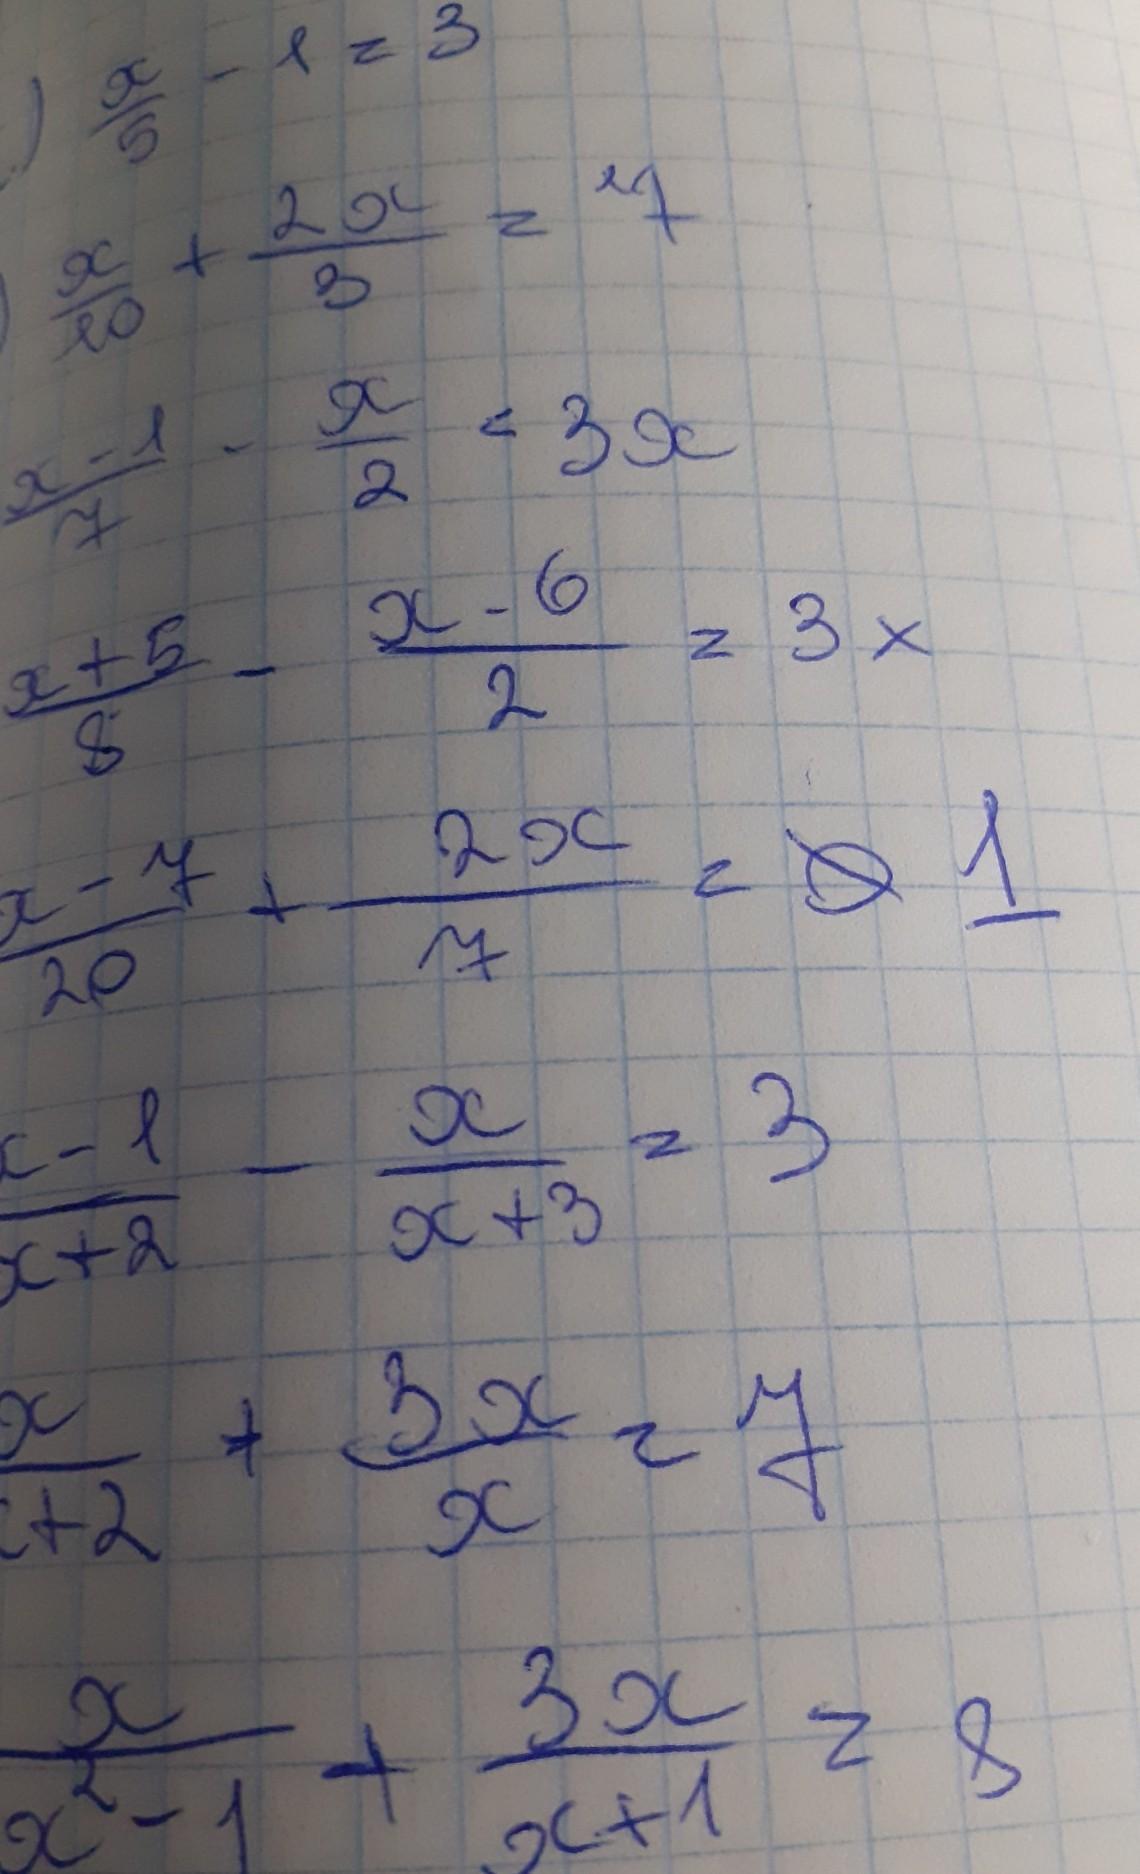 ) x/5 - 1 = 3
) x/10 + 2x/3 = 7
x-1/7 - x/2 = 3x
x+5/8 - x-6/2 = 3x
x-7/20 + 2x/7 = 1
x-1/x+2 - x/x+3 = 3
x/x+2 + 3x/x = 7
x/x²-1 + 3x/x+1 = 8